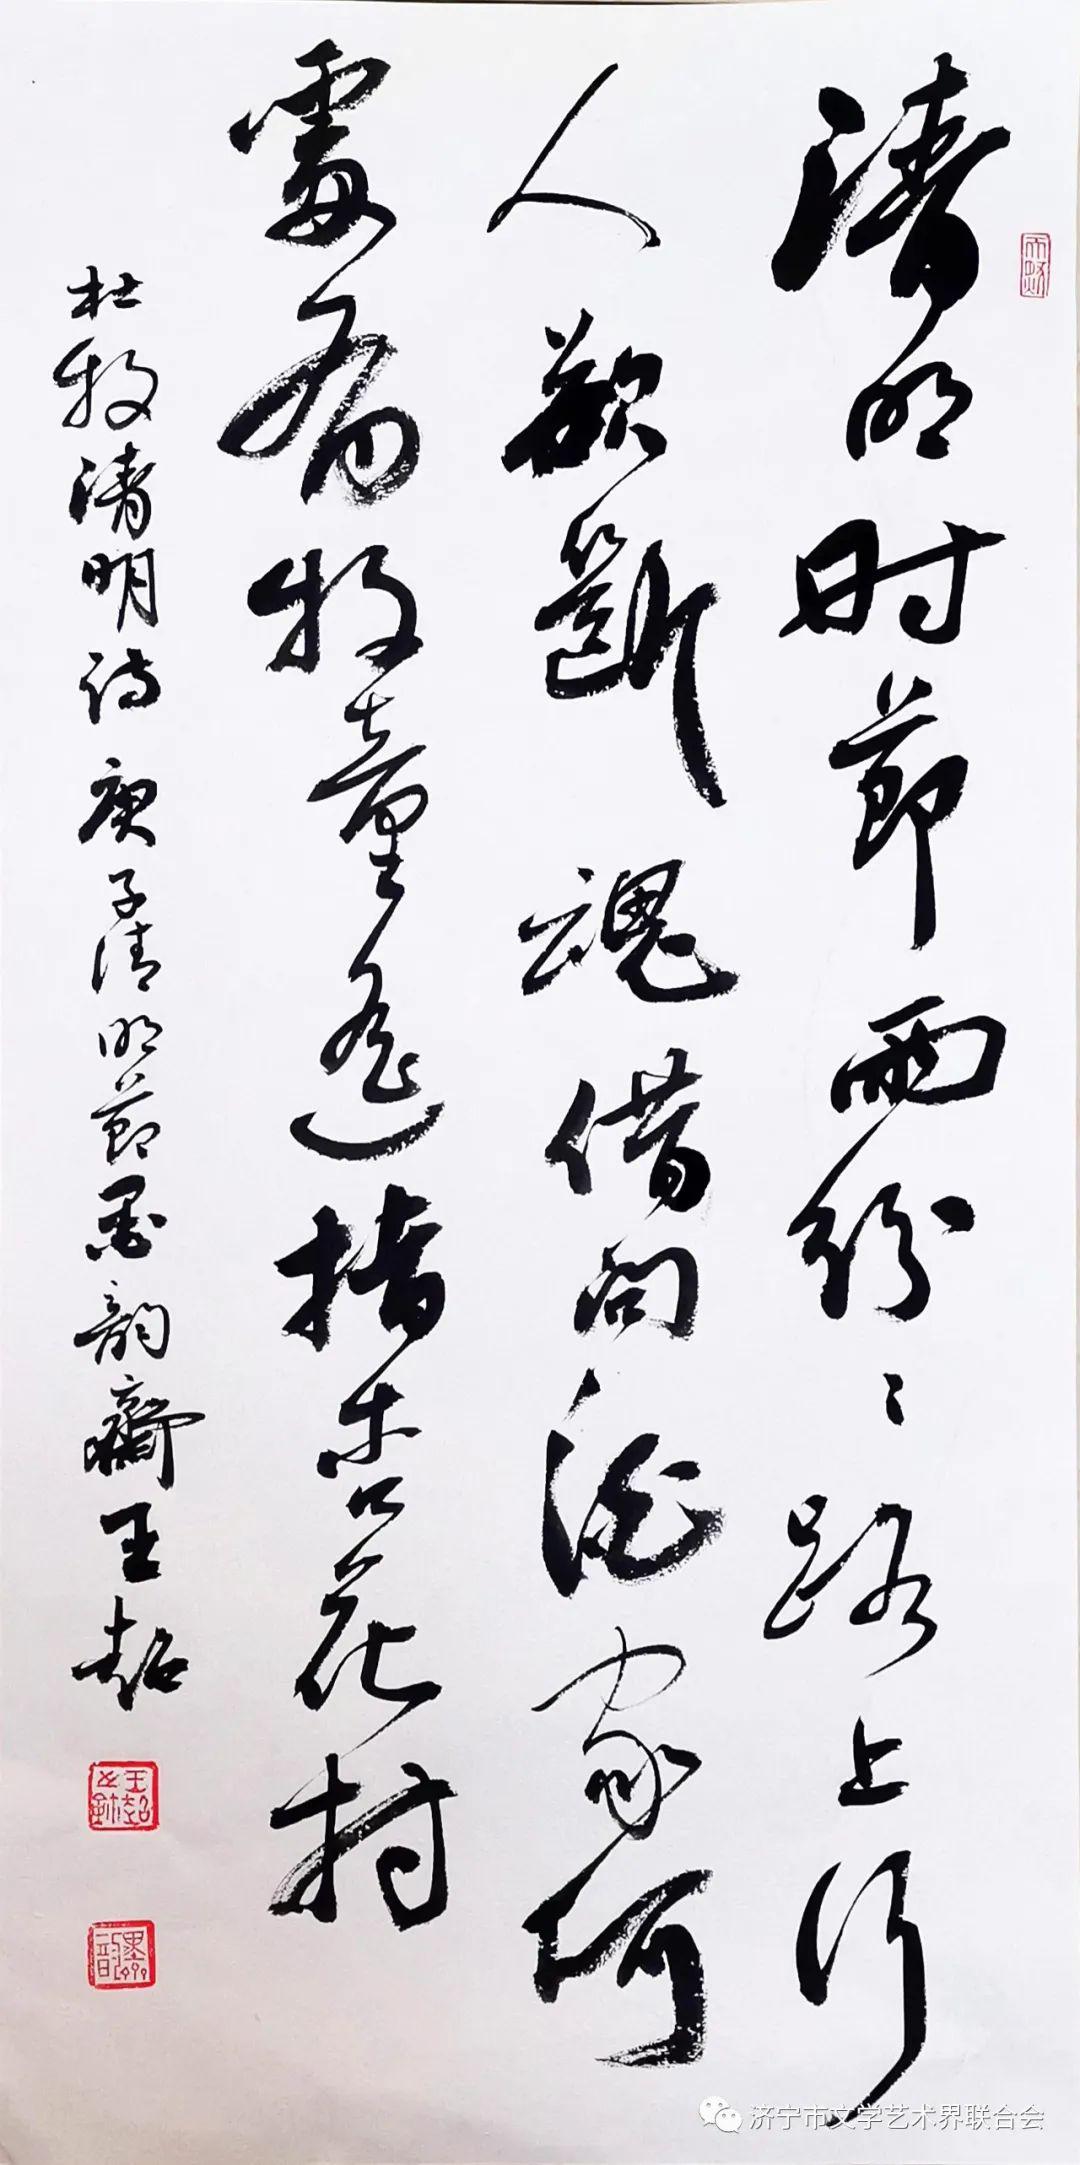 清明时节雨纷〻路上行
人欲斷魂借问酒家何
處有牧童遥指杏花村
杜牧清明诗庚子清明节墨韵齋王超
济宁市文学艺术界联合会